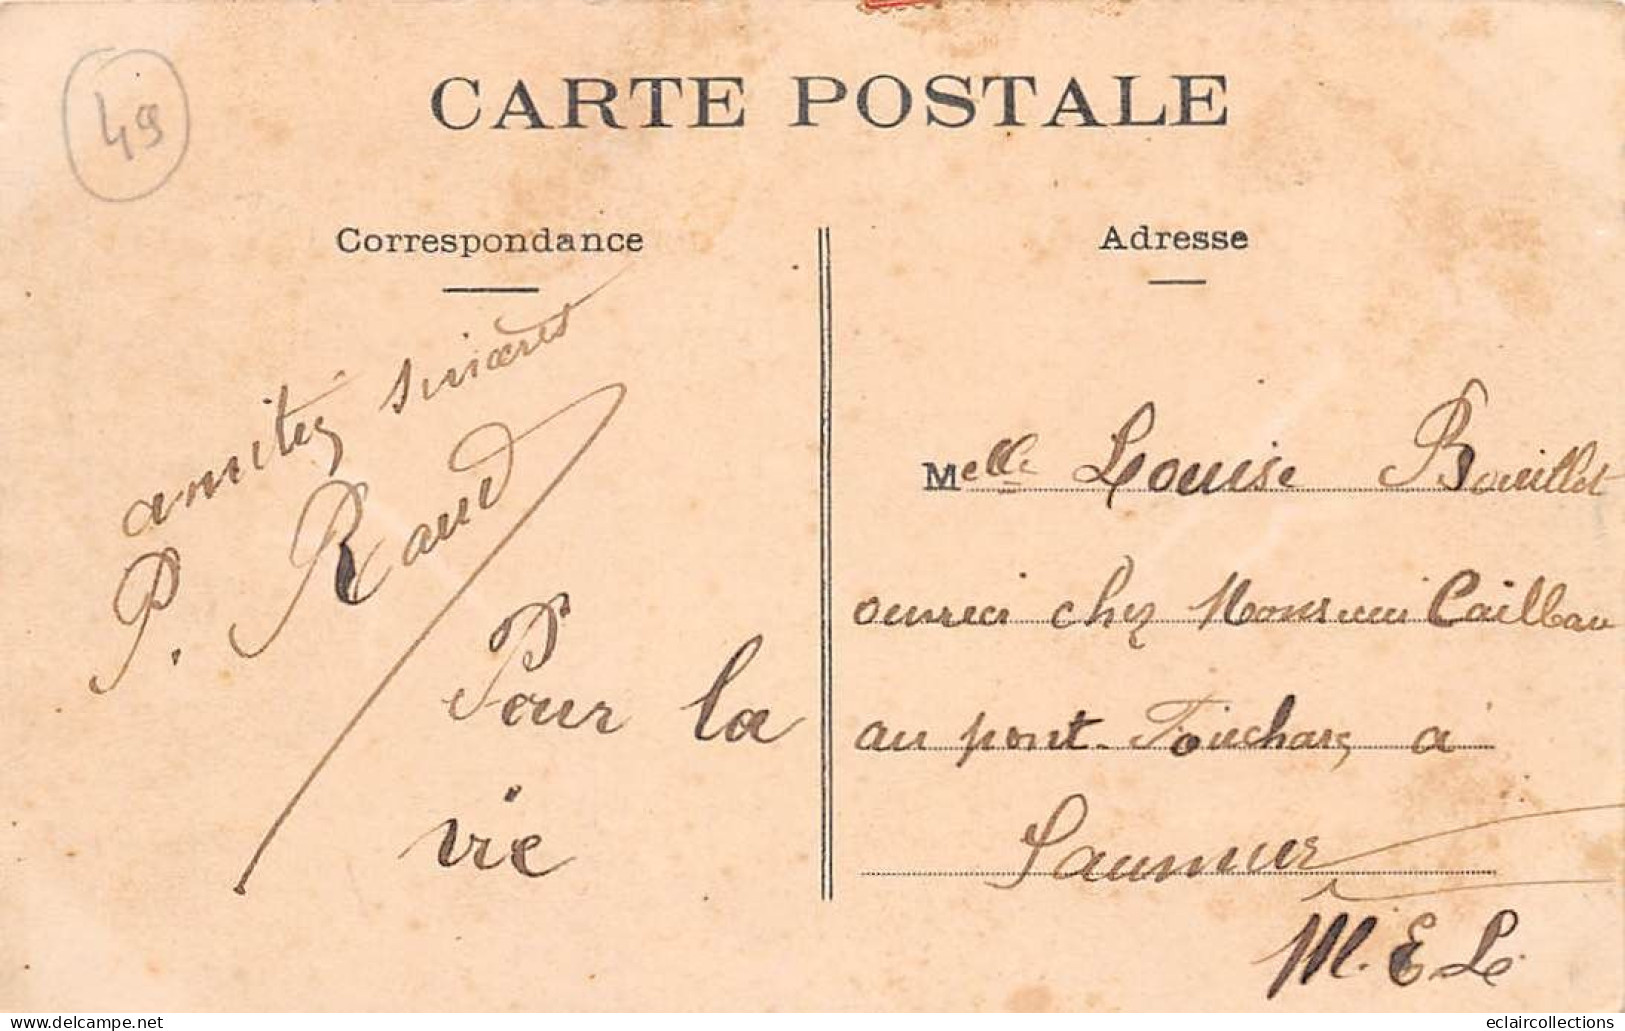 49
CARTE POSTALE
Correspondance
Adresse
amitiés sincères
P. Raud
Pour la
vie
Melle Louise Bouillet
chez Monsieur Cailleau
au pont-Fouchard à
Saumur
M. E L.
eclaircollections